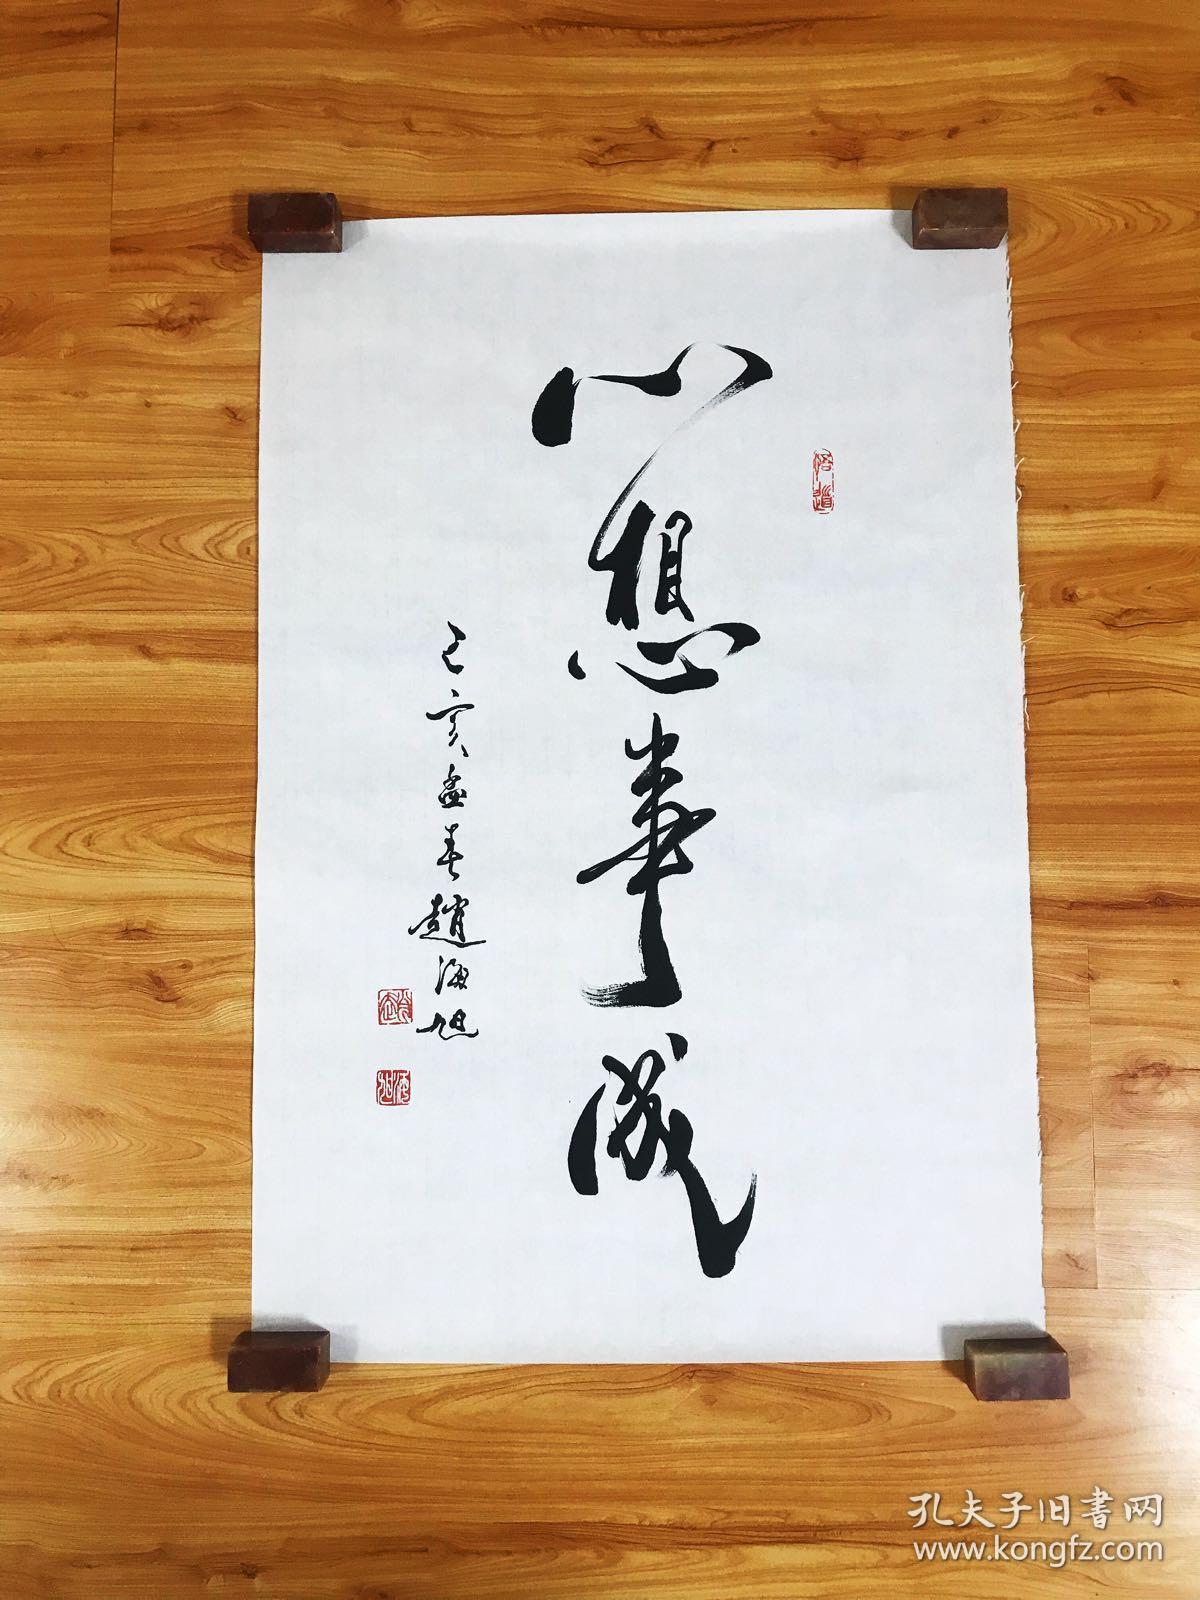 心想事成
己亥孟春趙海旭
悟道
趙
海旭
孔夫子旧书网
www.kongfz.com